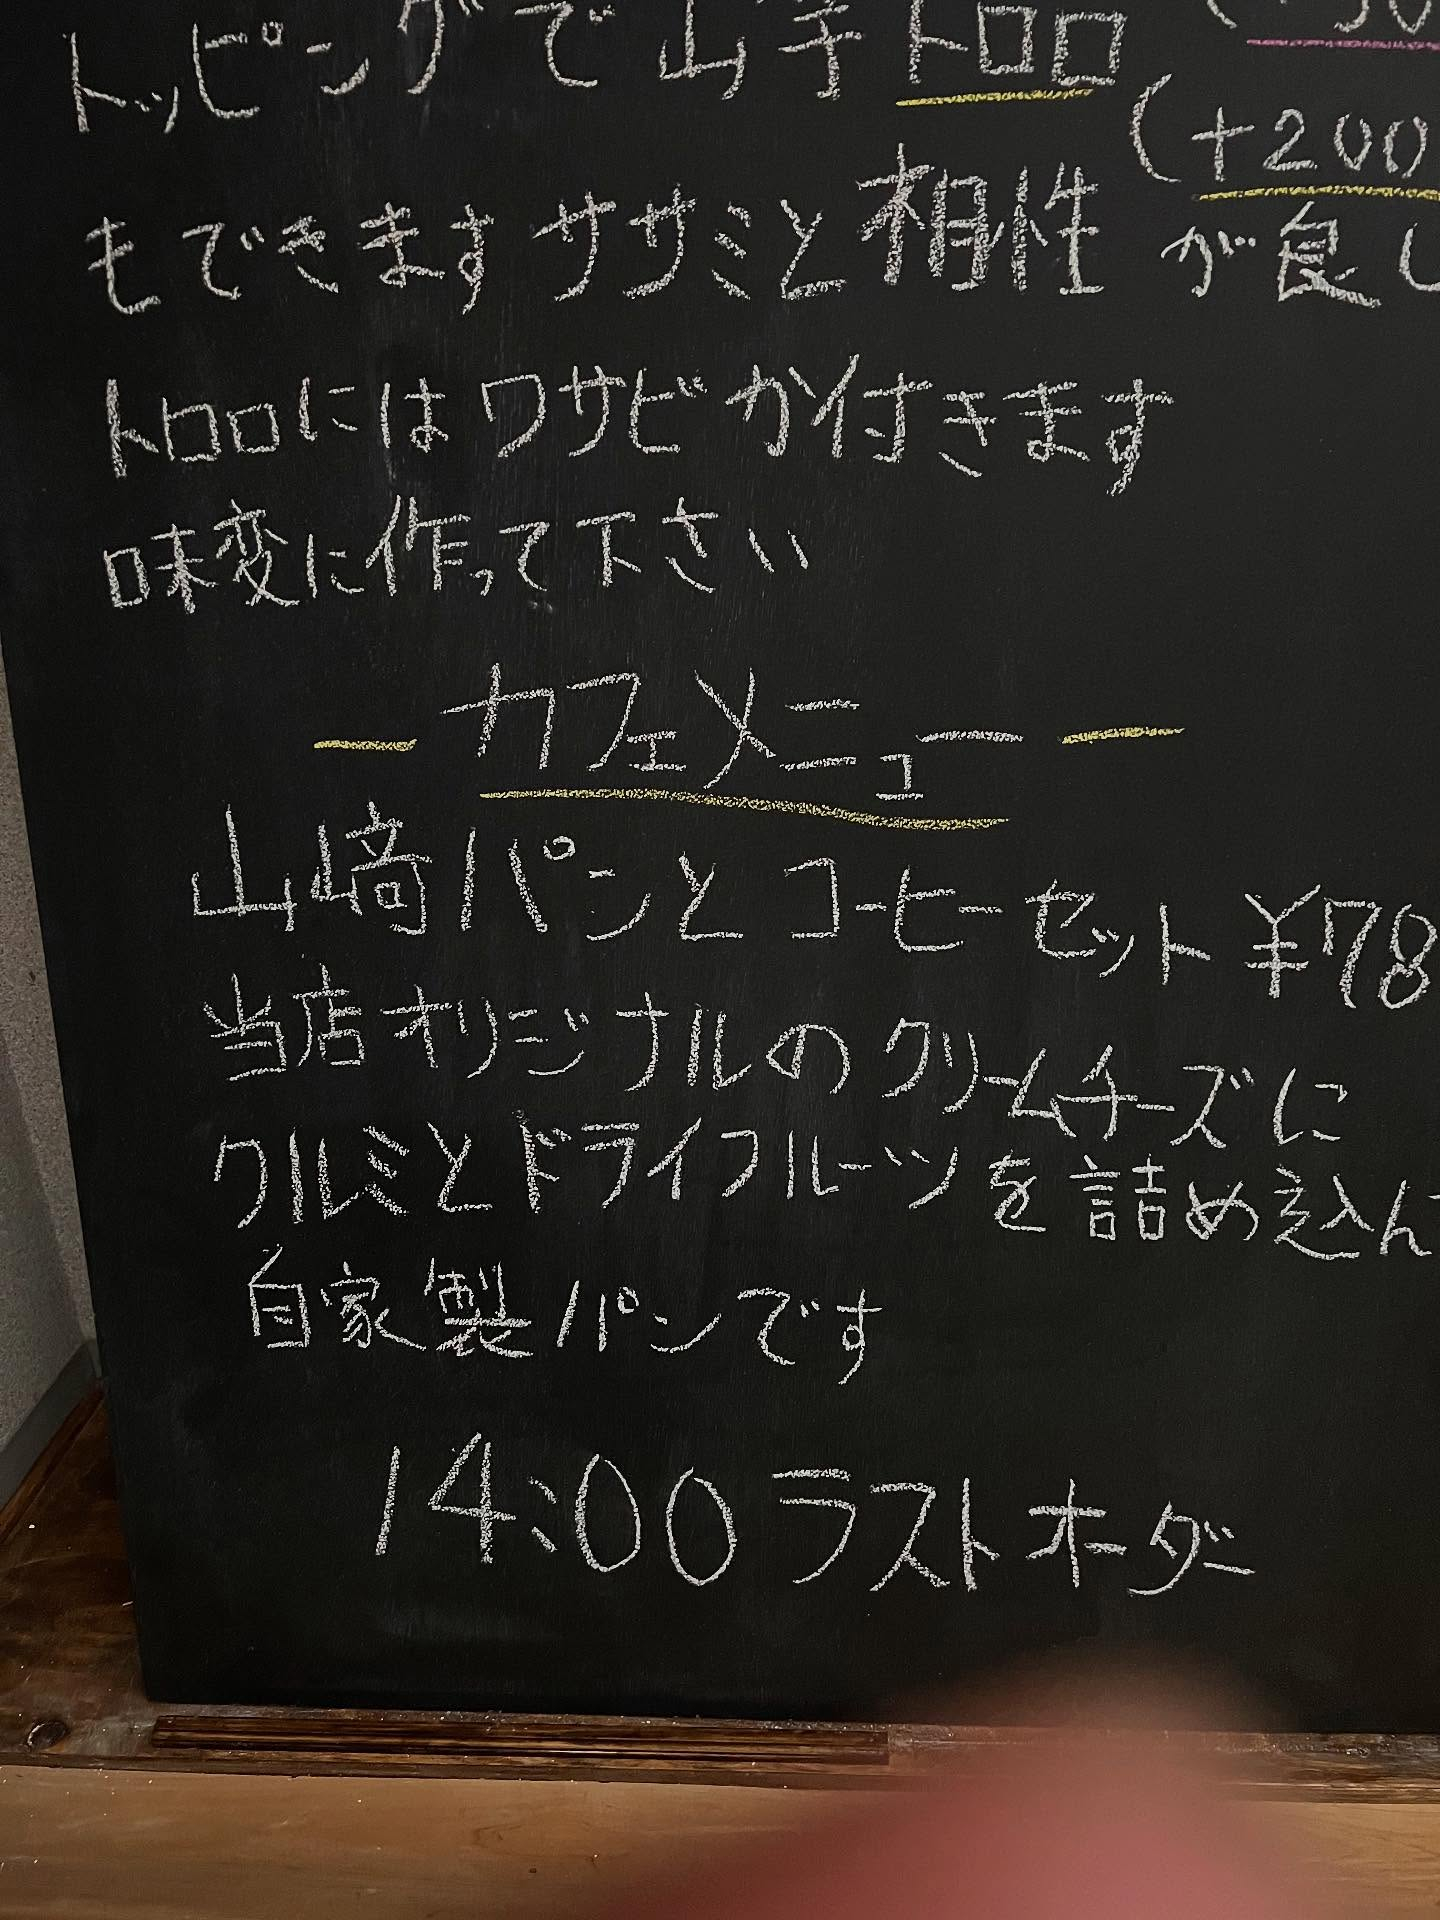 トッピングで山芋トロロ
(+200
もできますササミと相性が良し
トロロにはワサビか付きます
味変に作って下さい
カフェメニュー
山﨑パンとコーヒーセット ¥78
当店オリジナルのクリームチーズに
クルミとドライフルーツを詰め込ん
自家製パンです
14:00 ラストオーダー